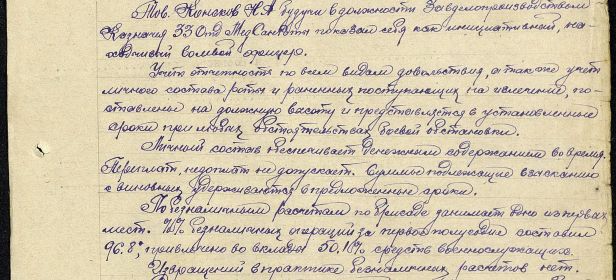 Тов. Консков Н.А будучи в должности Завделопроизводством
Казначея 33 Отд МедСанРоты показал себя как инициативный, на-
волевой офицер.
Учет отчетность по всем видам довольствия, а так же учет
личного состава роты и раненных поступающих на излечение, по-
ставлены на должную высоту и представляется в установленные
сроки при любых обстоятельствах боевой обстановки.
Личный состав обеспечивает денежным содержанием во время.
Переплат, недоплат не допускает. Суммы подлежащие взысканию
с виновных удерживаются в предложенные сроки.
По безналичным расчетам по бригаде занимает одно из первых
мест. % безналичных операций за первое полугодие составил
96.8%, привлечено во вклады 50.10% средств военнослужащих.
Извращений в практике безналичных расчетов нет.